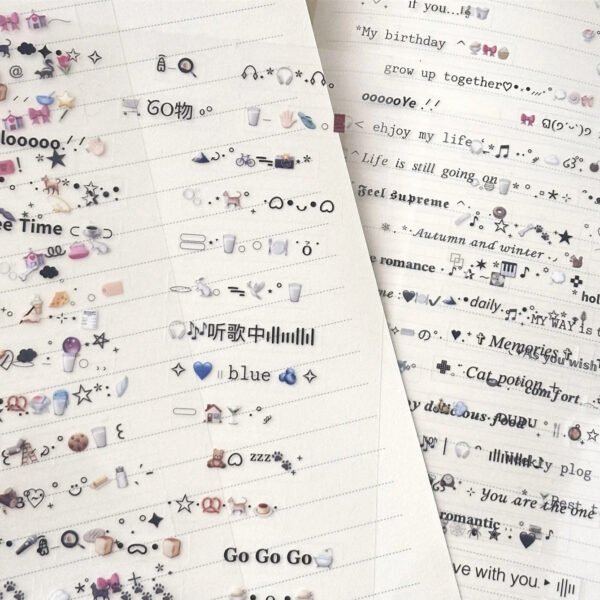 if you...
*My birthday ^
grow up together♡
oooooYe .ᐟ.ᐟ
GO物
looooo.ᐟ.ᐟ
< ehjoy my life
^ Life is still going on
Feel supreme ^
Autumn and winter
ee Time
e romance
daily.
MY WAY is t
As you wish
† Memories †
听歌中
blue
Cat potion
comfort
y delicious food
DUDU
zzz
Weekly plog
You are the one
Best t
romantic
Go Go Go
ve with you.